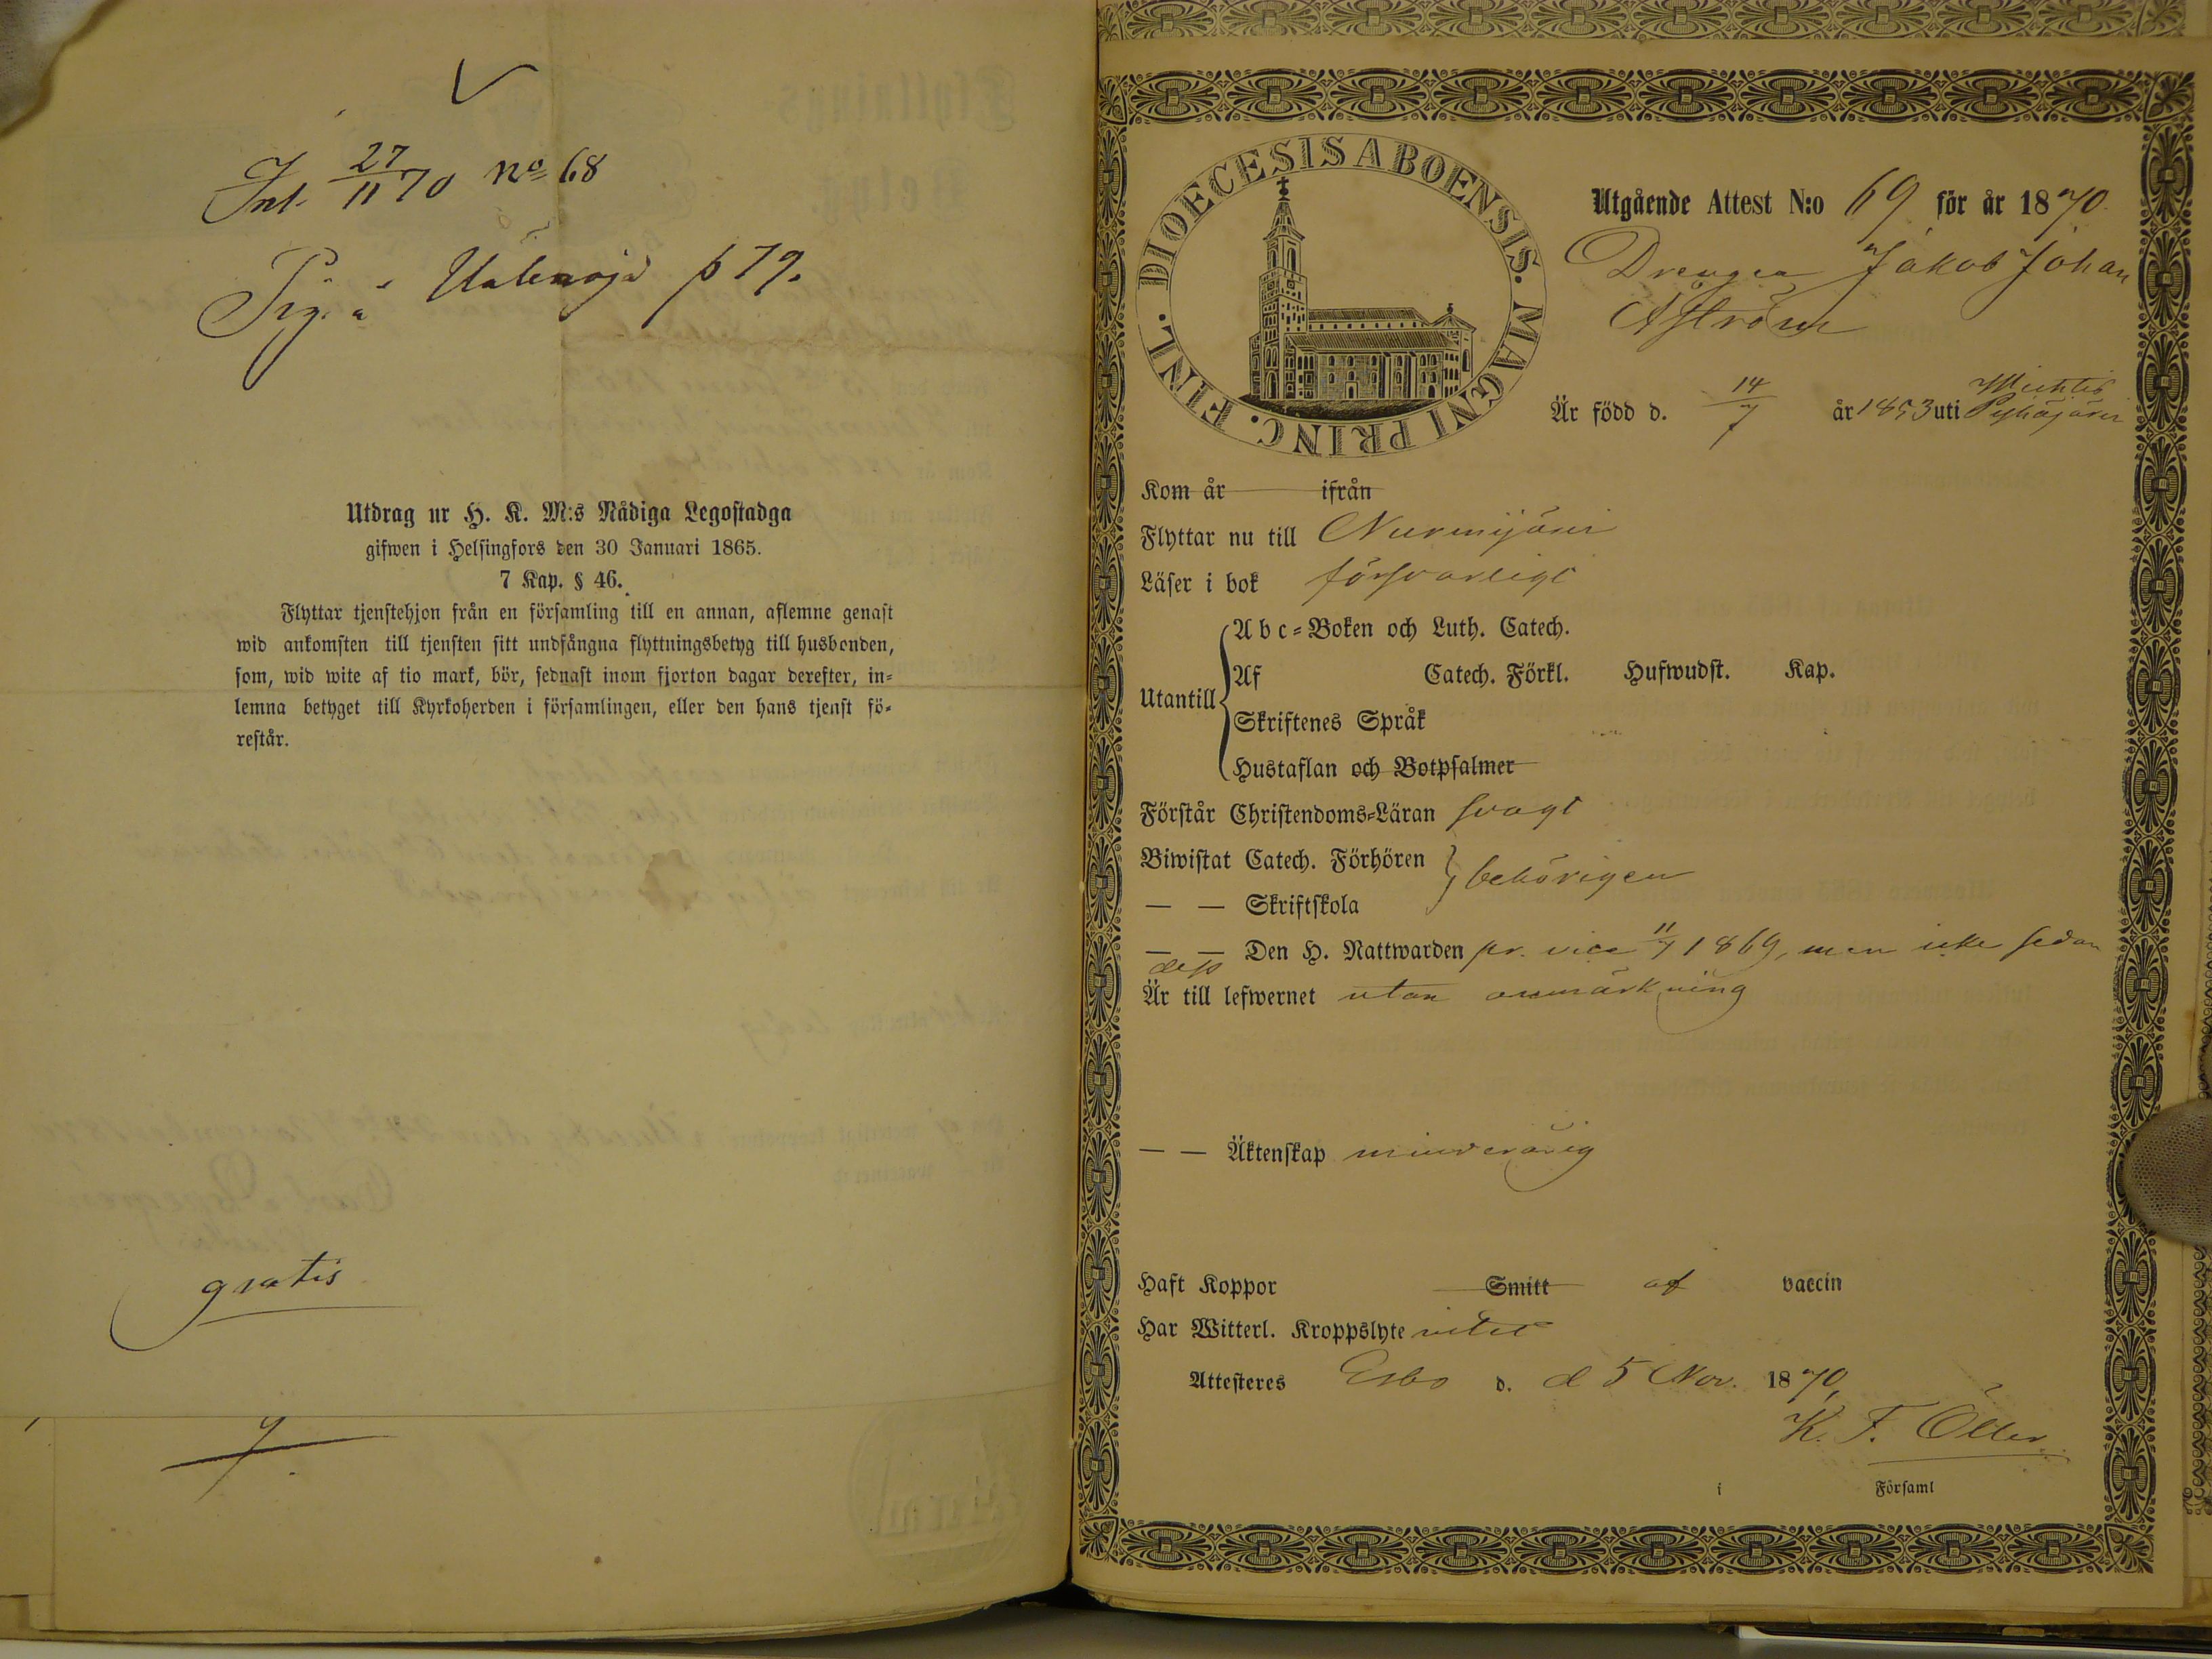 Inl. 27/11 70 no 68
Pig. å p 79.
Utdrag ur H. K. M:s Nådiga Legostadga
gifwen i Helsingfors den 30 Januari 1865.
7 Kap. § 46.
Flyttar tjenstehjon från en församling till en annan, aflemne genast
wid ankomsten till tjensten sitt undfångna flyttningsbetyg till husbonden,
som, wid wite af tio mark, bör, sednast inom fjorton dagar derefter, in-
lemna betyget till Kyrkoherden i församlingen, eller den hans tjenst fö-
restår.
gratis
DIOECESIS ABOENSIS. MAGNI PRINC. FINL.
Utgående Attest N:o 69 för år 1870.
Drengen Jakob Johan
Åström
Är född d. 14/7 år 1853 uti Wichtis Pyhäjärvi
Kom år ifrån
Flyttar nu till Nurmijärvi
Läser i bok försvarligt
Utantill
Abc-Boken och Luth. Catech.
Af Catech. Förkl. Hufwudst. Kap.
Skriftenes Språk
Hustaflan och Botpsalmer
Förstår Christendoms-Läran svagt
Biwistat Catech. Förhören } behörigen
— — Skriftskola
— — Den H. Nattwarden pr. vice 11/7 1869, men icke sedan
dess
Är till lefwernet utan anmärkning
— — Äktenskap minderårig
Haft Koppor Smitt af vaccin
Har Witterl. Kroppslyte intet
Attesteres Esbo d. d 5 Nov. 1870,
K. F. Öller
i Församl